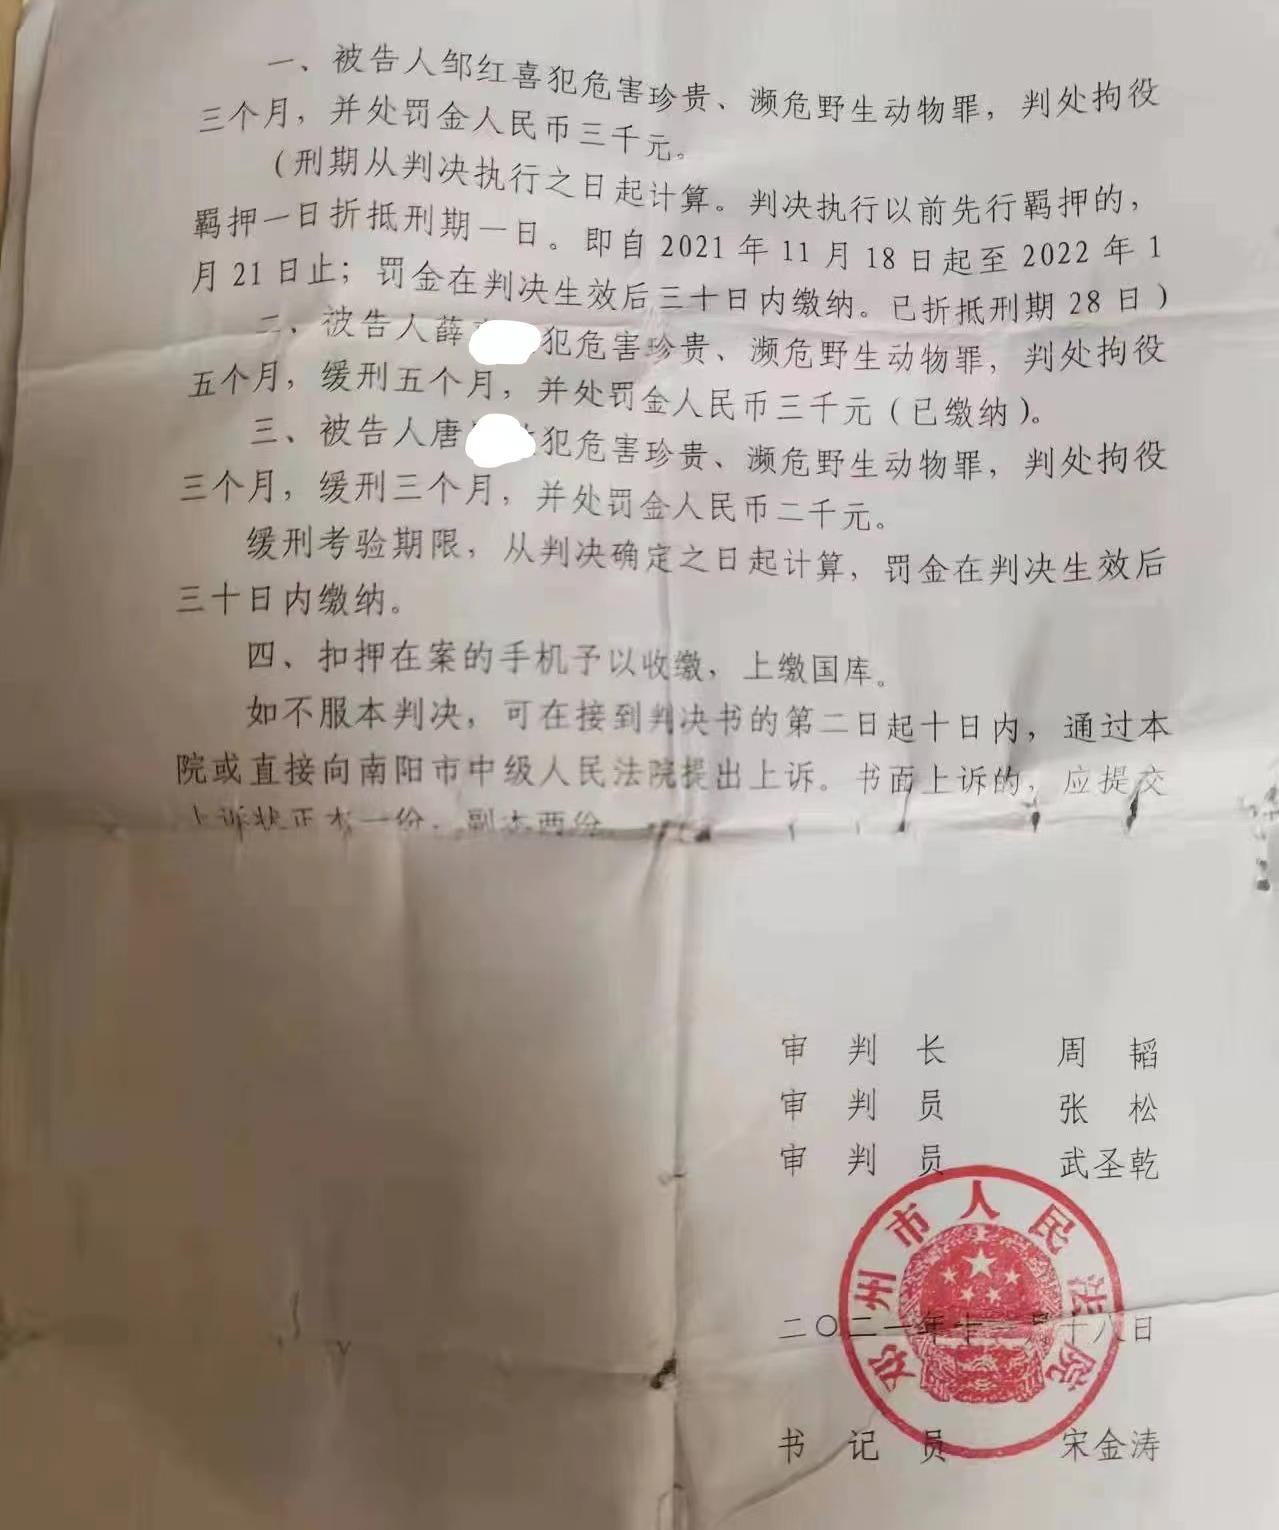 一、被告人邹红喜犯危害珍贵、濒危野生动物罪，判处拘役
三个月，并处罚金人民币三千元。
（刑期从判决执行之日起计算。判决执行以前先行羁押的，
羁押一日折抵刑期一日。即自2021年11月18日起至2022年1
月21日止；罚金在判决生效后三十日内缴纳。已折抵刑期28日）
二、被告人薛 犯危害珍贵、濒危野生动物罪，判处拘役
五个月，缓刑五个月，并处罚金人民币三千元（已缴纳）。
三、被告人唐 犯危害珍贵、濒危野生动物罪，判处拘役
三个月，缓刑三个月，并处罚金人民币二千元。
缓刑考验期限，从判决确定之日起计算，罚金在判决生效后
三十日内缴纳。
四、扣押在案的手机予以收缴，上缴国库。
如不服本判决，可在接到判决书的第二日起十日内，通过本
院或直接向南阳市中级人民法院提出上诉。书面上诉的，应提交
上诉状正本一份，副本两份。
审 判 长 周 韬
审 判 员 张 松
审 判 员 武圣乾
邓州市人民法院
二〇二一年十一月十八日
书 记 员 宋金涛